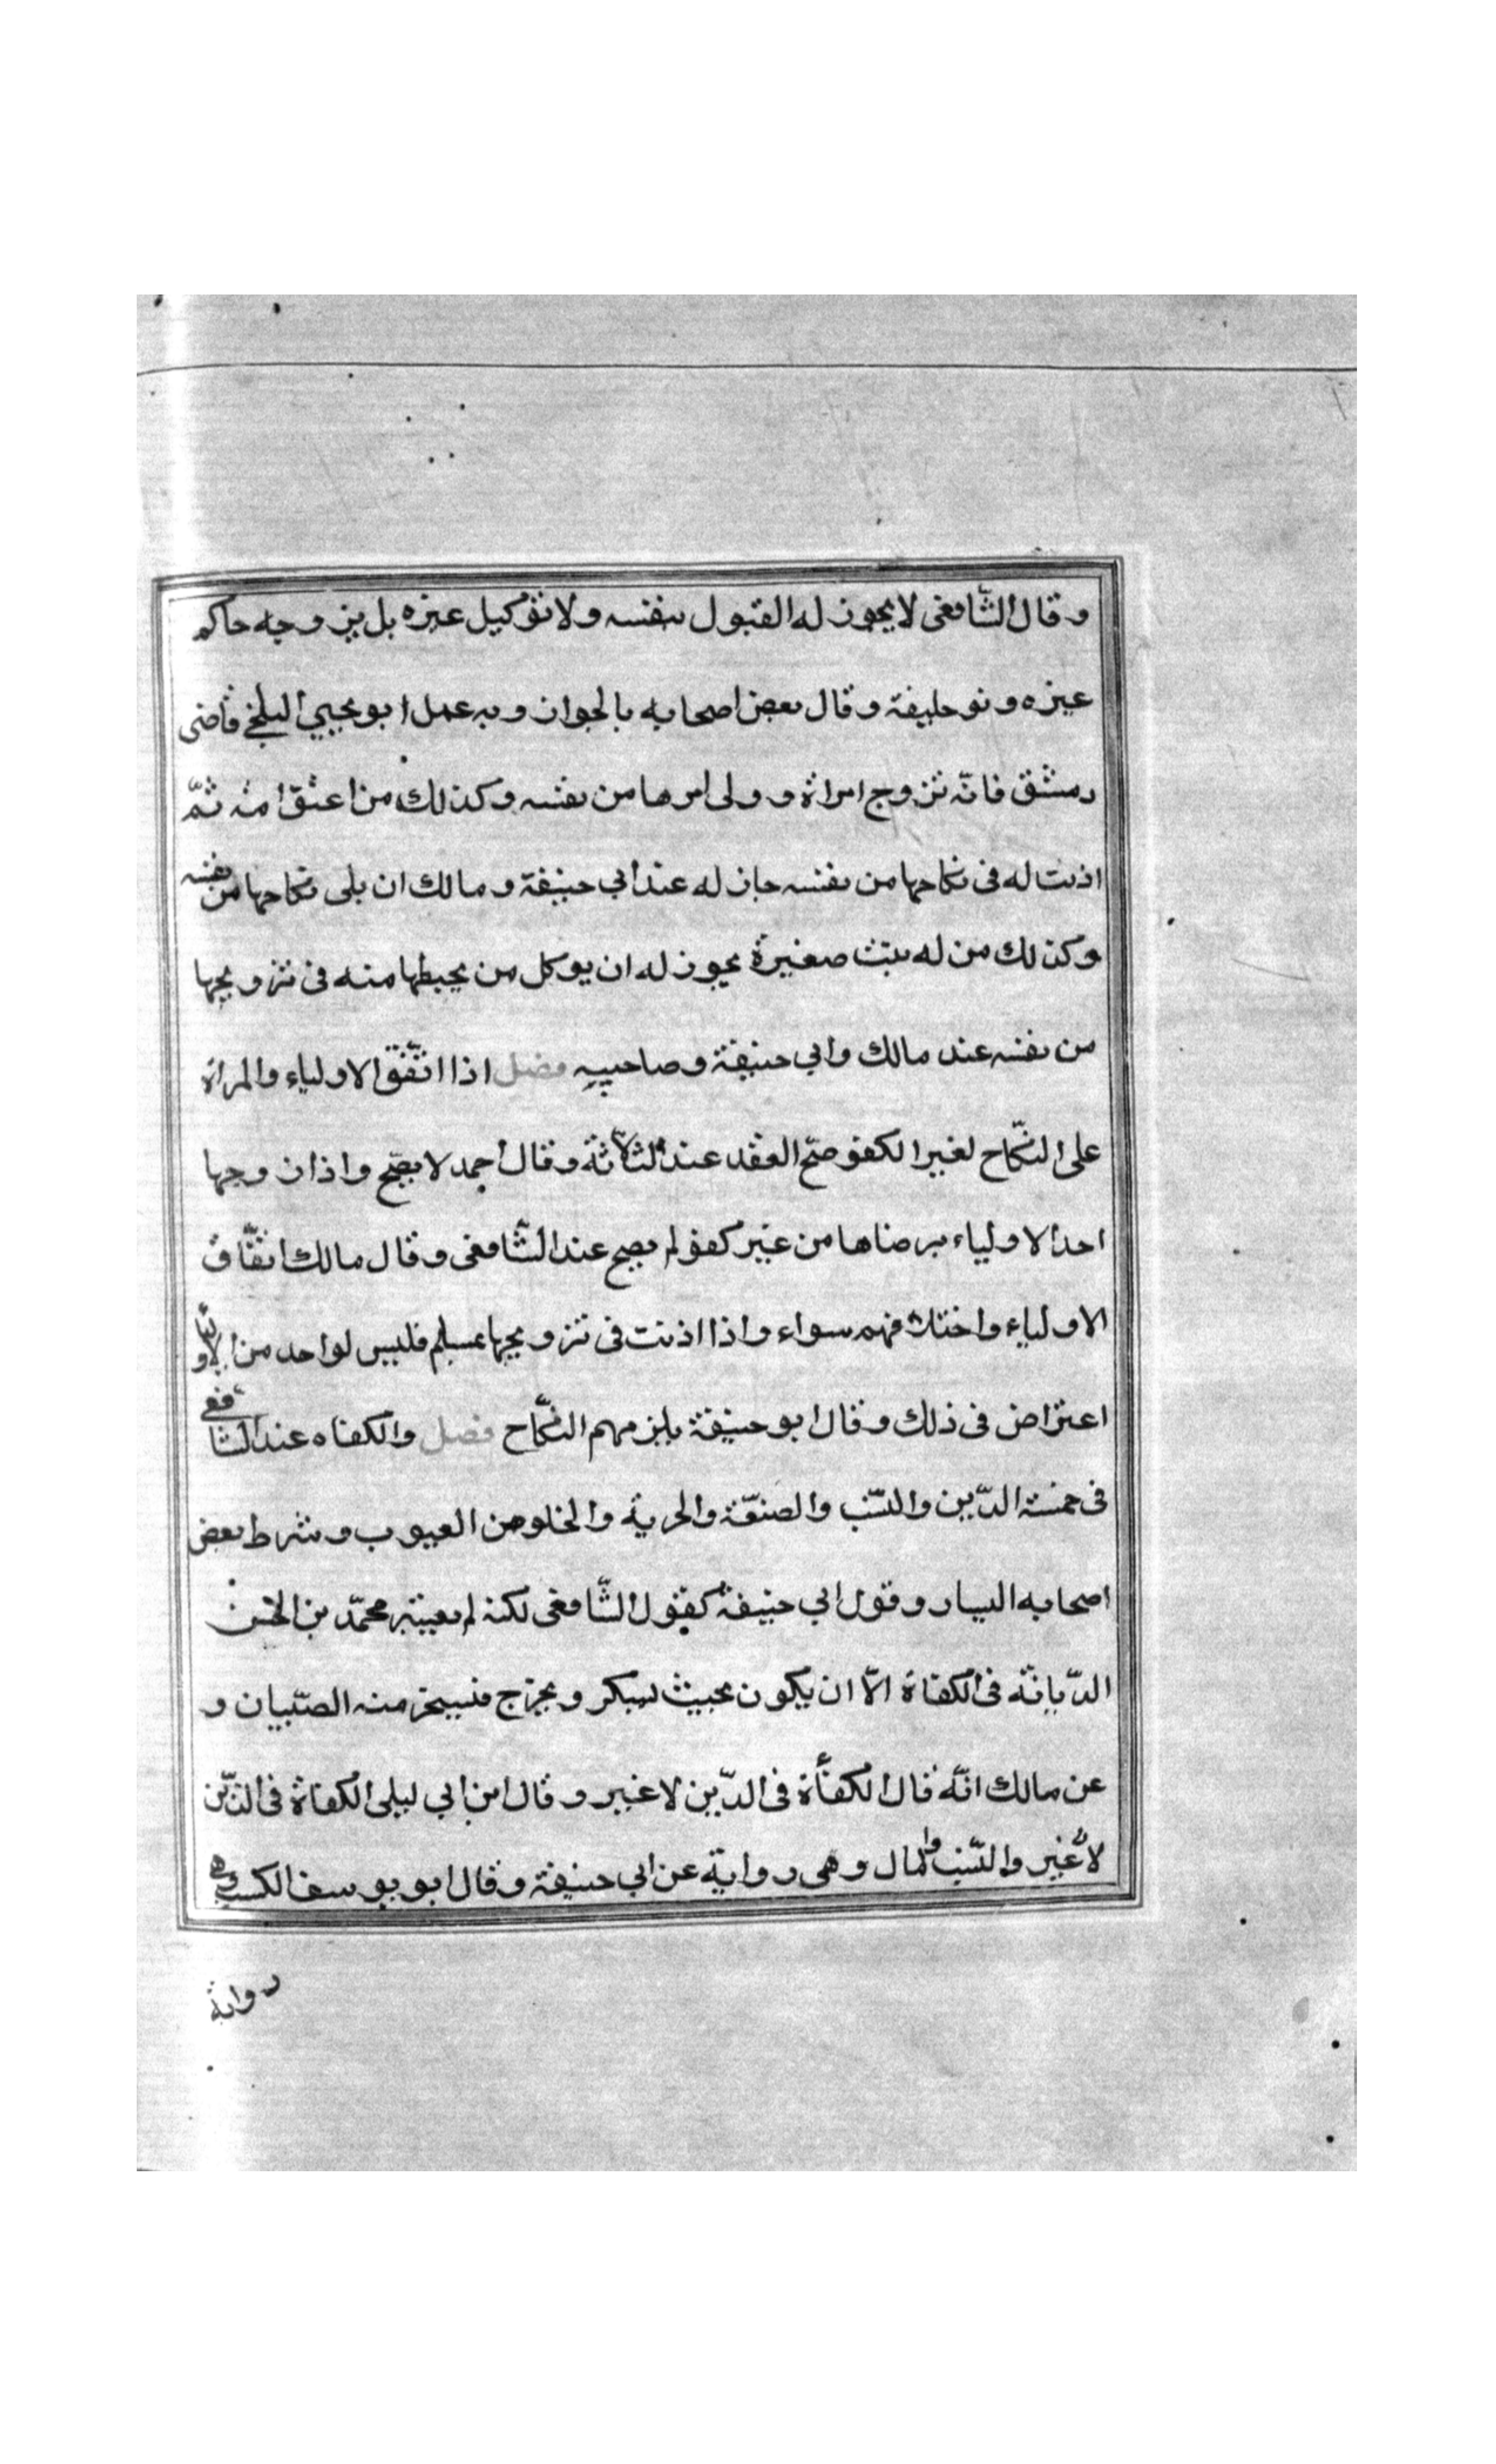 وقال الشافعى لا يجوز له القبول بنفسه ولا توكيل غيره بل يزوجه حاكم
غيره ونو خليفة وقال بعض اصحابه بالجواز وبه عمل ابو يحيى البلخى قاضى
دمشق فانّه تزوج امراة وولى امرها من نفسه وكذلك من اعتق امة ثمّ
اذنت له فى نكاحها من نفسه جاز له عند ابي حنيفة ومالك ان يلى نكاحها من نفسه
وكذلك من له بنت صغيرة يجوز له ان يوكل من يخطبها منه فى تزويجها
من نفسه عند مالك وابي حنيفة وصاحبيه فصل اذا اتّفق الاولياء والمراة
على النّكاح لغير الكفو صحّ العقد عند الثلاثة وقال احمد لا يصحّ واذا زوجها
احد الاولياء برضاها من غير كفو لم يصح عند الشّافعى وقال مالك اتّفاق
الاولياء واختلا فهم سواء واذا اذنت فى تزويجها بمسلم فليس لواحد من الاوليا
اعتراض فى ذلك وقال ابو حنيفة يلزمهم النّكاح فصل والكفاه عند الشافعى
فى خمسة الدّين والنّسب والصنعّة والحرية والخلو من العيوب وشرط بعض
اصحابه اليسار وقول ابي حنيفة كقول الشّافعى لكنه لم يعتبر محمّد بن الحسن
الدّيانّة فى الكفاة الّا ان يكون بحيث يسكر ويخرج فيسخر منه الصّبيان و
عن مالك انّه قال الكفأة فى الدّين لا غير وقال ابن ابي ليلى الكفاة فى الدّين
لا غير والنّسب والمال وهى رواية عن ابي حنيفة وقال ابو يوسف الكسب وهى
رواية